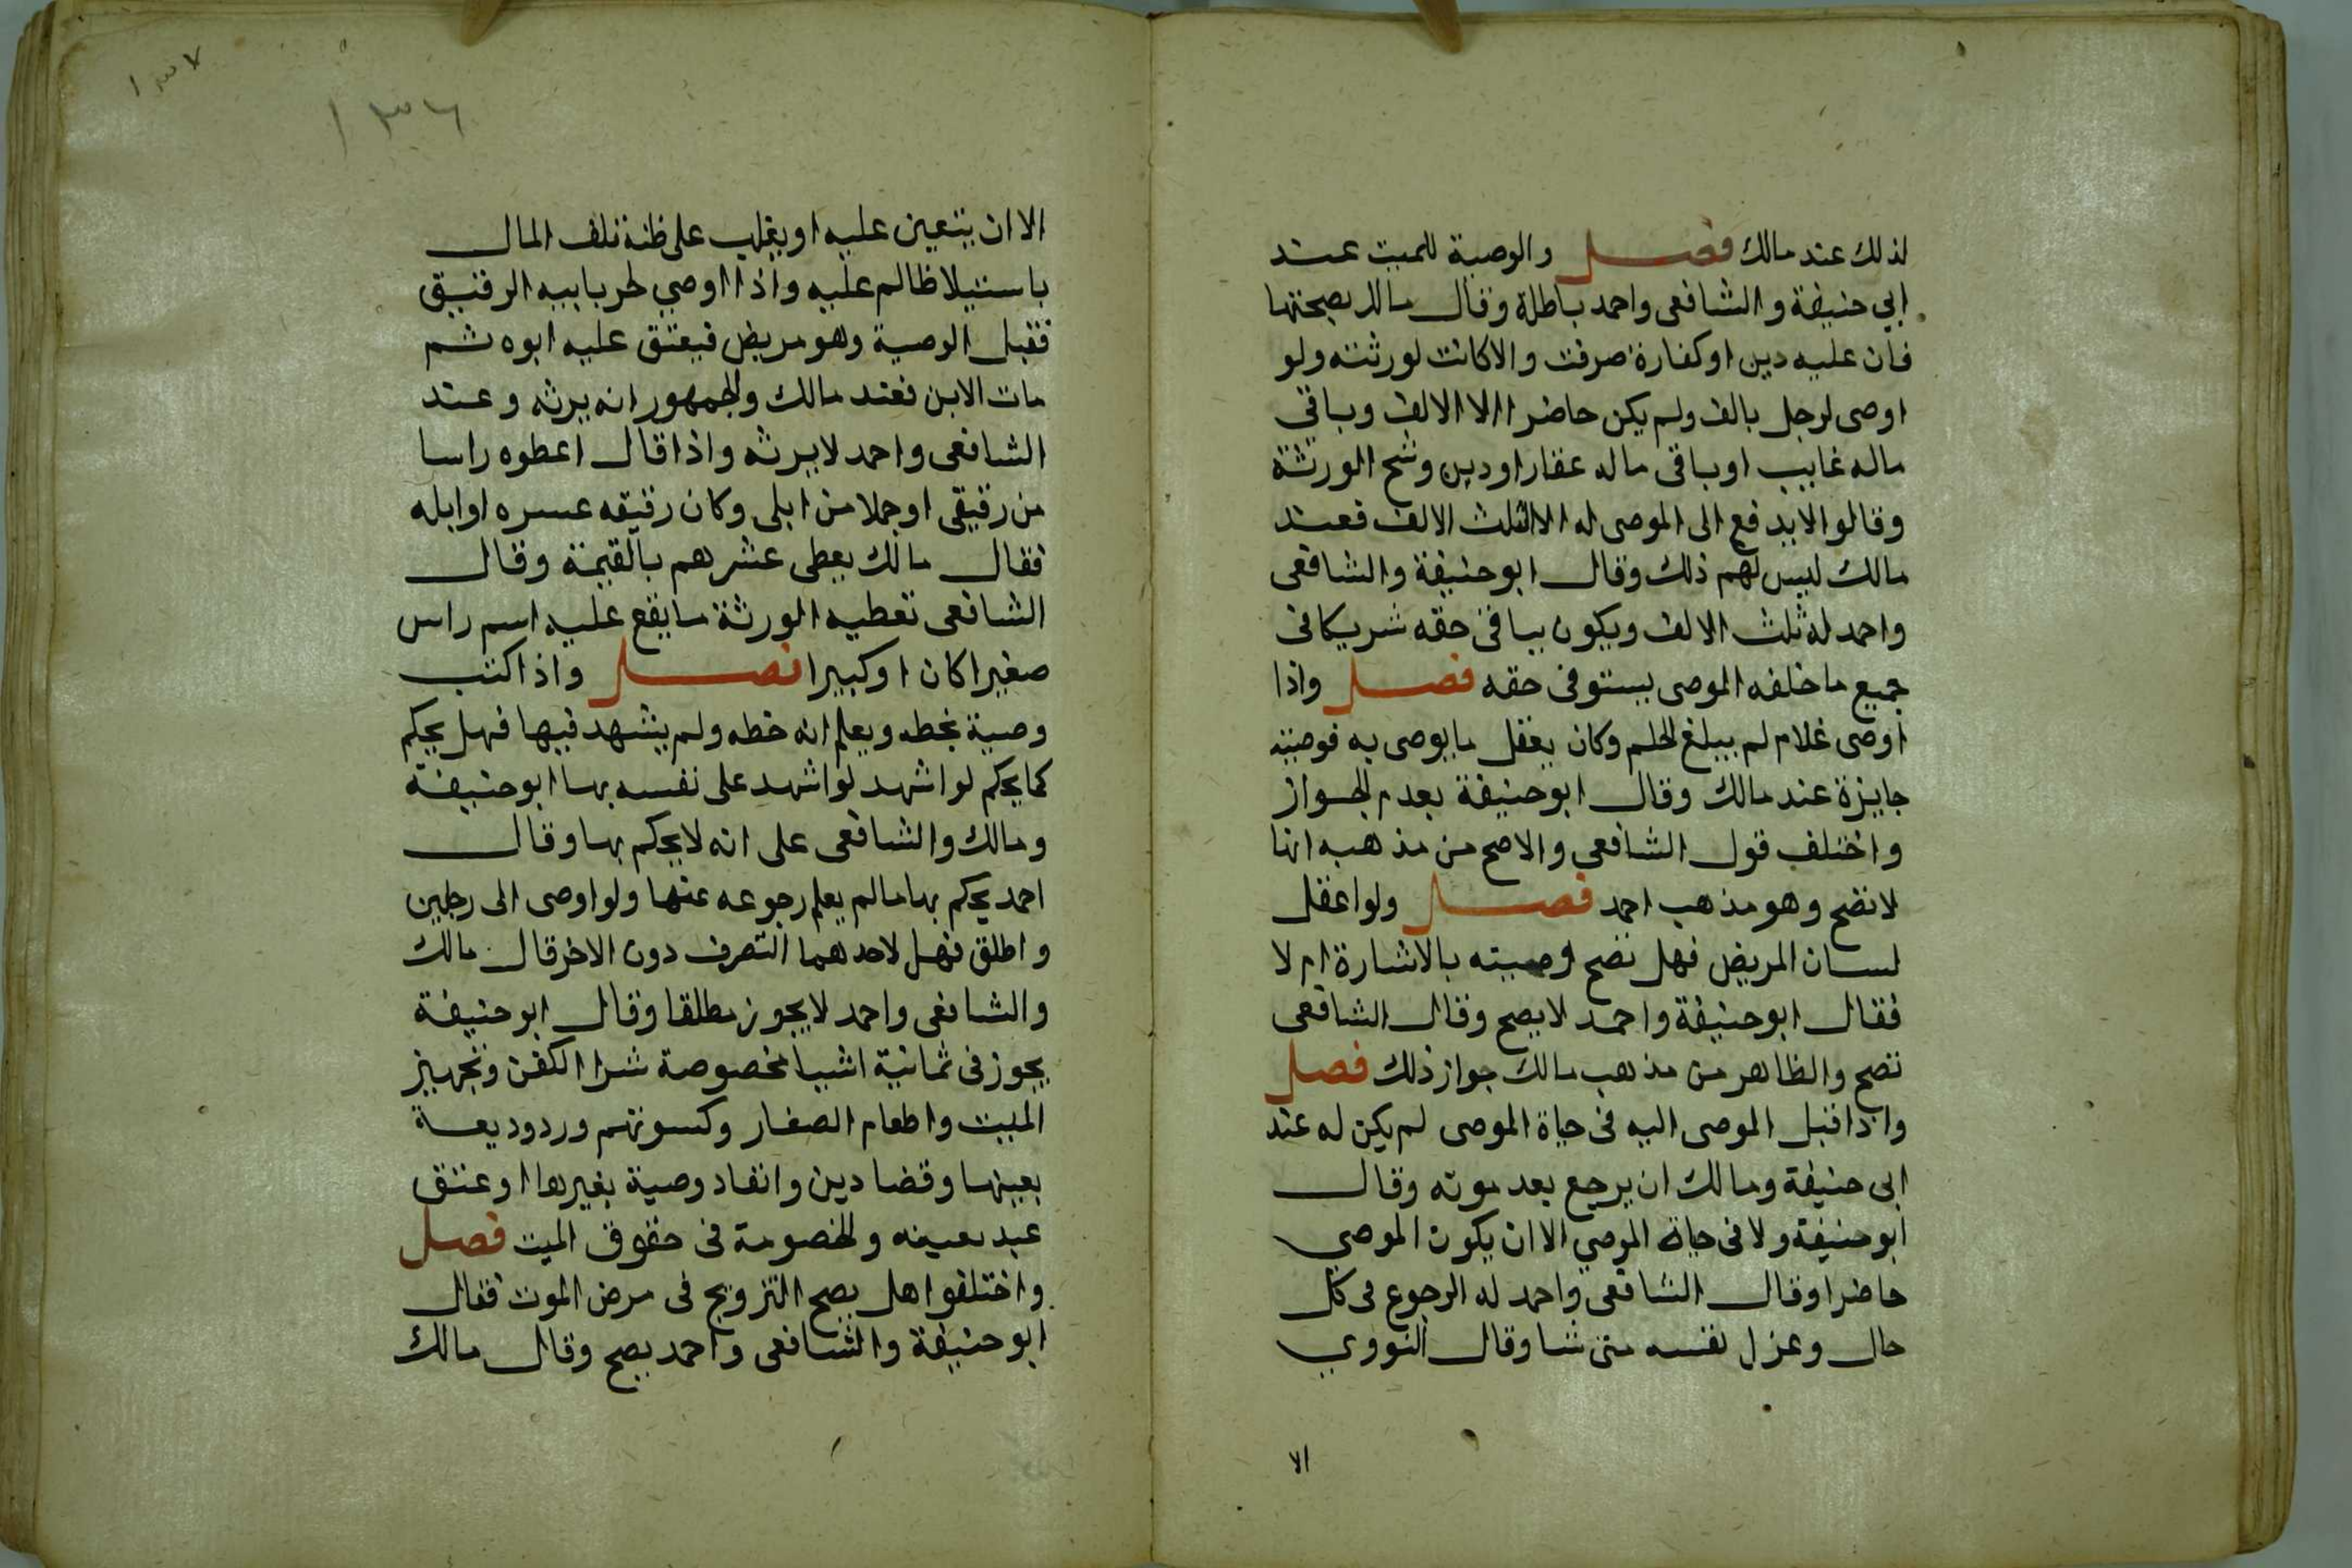 لذلك عند مالك فصل والوصية للميت عند
ابي حنيفة والشافعى واحمد باطلة وقال مالك بصحتها
فان عليه دين او كفارة صرفت والا كانت لورثته ولو
اوصى لرجل بالف ولم يكن حاضرا الا الالف وباقي
ماله غايب او باقى ماله عقار او دين وشح الورثة
وقالوا لا يدفع الى الموصى له الا الثلث الالف فعند
مالك ليس لهم ذلك وقال ابو حنيفة والشافعى
واحمد له ثلث الالف ويكون بباقى حقه شريكا فى
جميع ما خلفه الموصى يستوفى حقه فصل واذا
اوصى غلام لم يبلغ الحلم وكان يعقل ما يوصى به فوصيته
جايزة عند مالك وقال ابو حنيفة بعدم الجواز
واختلف قول الشافعى والاصح من مذهبه انها
لا تصح وهو مذهب احمد فصل ولو اعقل
لسان المريض فهل تصح وصيته بالاشارة ام لا
فقال ابو حنيفة واحمد لا يصح وقال الشافعى
تصح والظاهر من مذهب مالك جواز ذلك فصل
واذا قبل الموصى اليه فى حياة الموصى لم يكن له عند
ابى حنيفة ومالك ان يرجع بعد موته وقال
ابو حنيفة ولا فى حياة الموصي الا ان يكون الموصي
حاضرا وقال الشافعى واحمد له الرجوع فى كل
حال وعزل نفسه متى شا وقال النووي
الا
١٣٧
١٣٦
الا ان يتعين عليه او يغلب على ظنه تلف المال
باستيلا ظالم عليه واذا اوصي لحر بابيه الرقيق
فقبل الوصية وهو مريض فيعتق عليه ابوه ثم
مات الابن فعند مالك والجمهور انه يرثه وعند
الشافعى واحمد لا يرثه واذا قال اعطوه راسا
من رقيقى او جملا من ابلى وكان رقيقه عسره او ابله
فقال مالك يعطى عشرهم بالقيمة وقال
الشافعى تعطيه الورثة ما يقع عليه اسم راس
صغيرا كان او كبيرا فصل واذا كتب
وصية بخطه ويعلم انه خطه ولم يشهد فيها فهل يحكم
كما يحكم لو اشهد لو اشهد على نفسه بها ابو حنيفة
ومالك والشافعى على انه لا يحكم بها وقال
احمد يحكم بها مالم يعلم رجوعه عنها ولو اوصى الى رجلين
واطلق فهل لاحدهما التصرف دون الاخر قال مالك
والشافعى واحمد لا يجوز مطلقا وقال ابو حنيفة
يجوز فى ثمانية اشيا مخصوصة شرا الكفن وتجهيز
الميت واطعام الصغار وكسوتهم ورد وديعة
بعينها وقضا دين وانفاد وصية بغيرها او عتق
عبد بعينه والخصومة فى حقوق الميت فصل
واختلفوا هل يصح التزويج فى مرض الموت فقال
ابو حنيفة والشافعى واحمد يصح وقال مالك